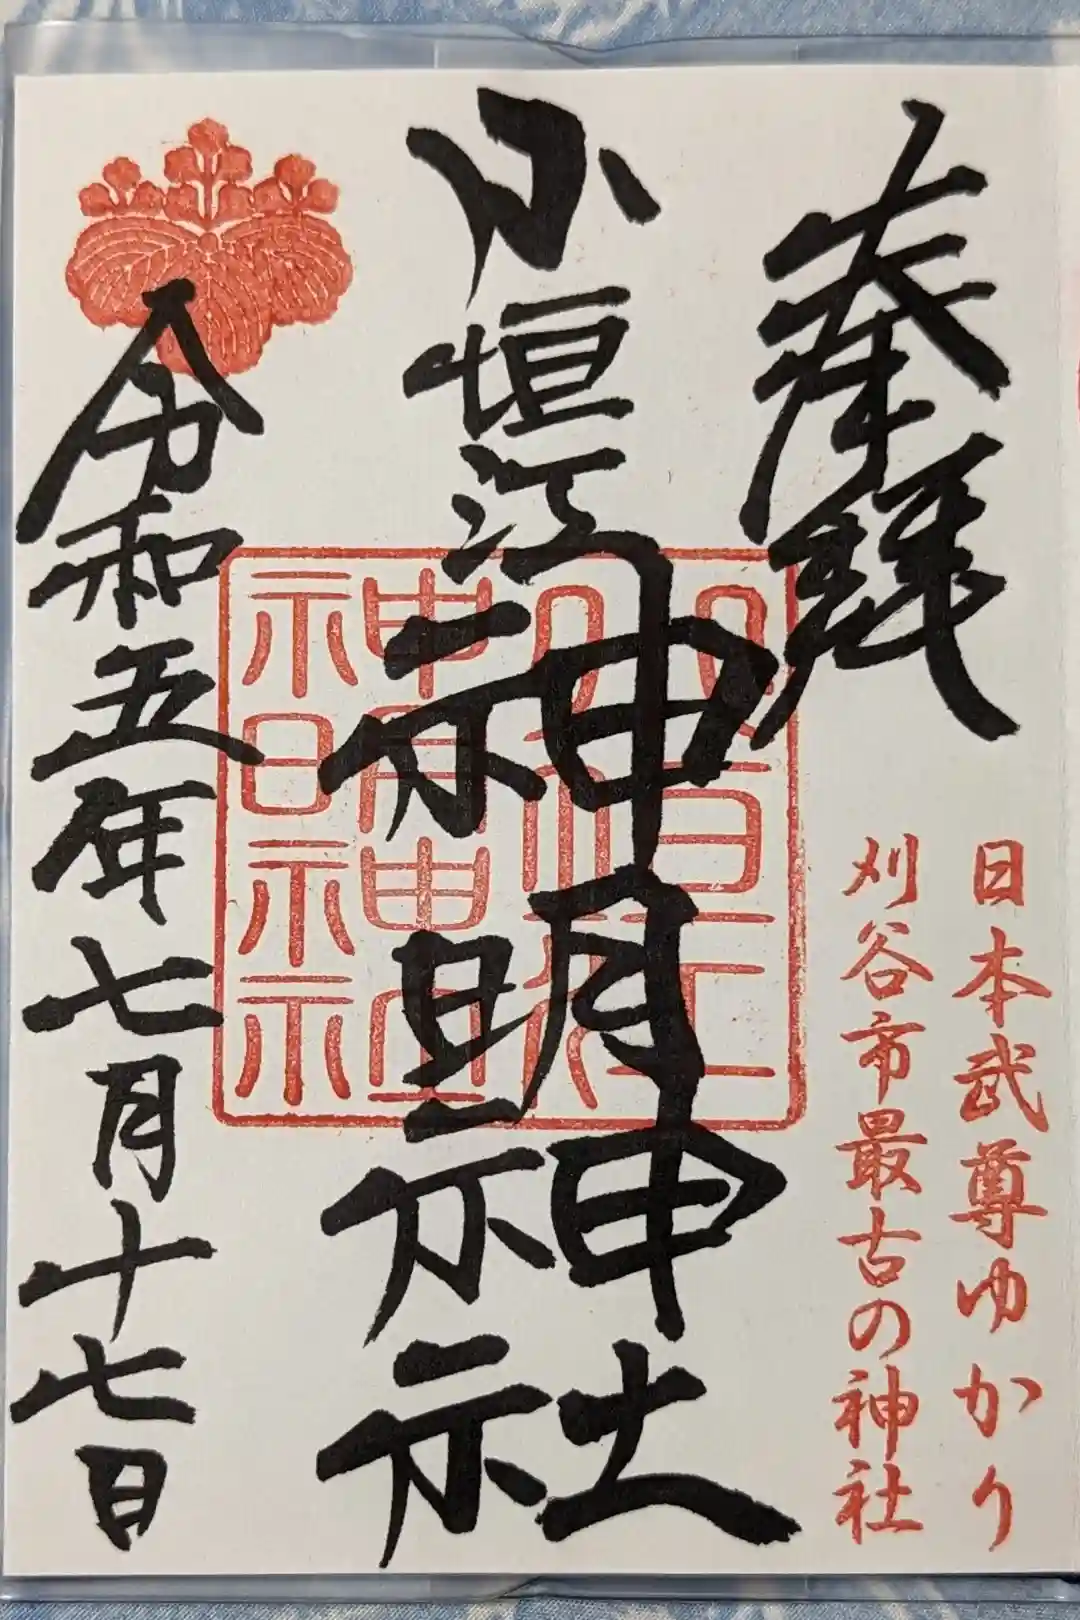 奉拝
日本武尊ゆかり
刈谷市最古の神社
小垣江
神明神社
令和五年七月十七日